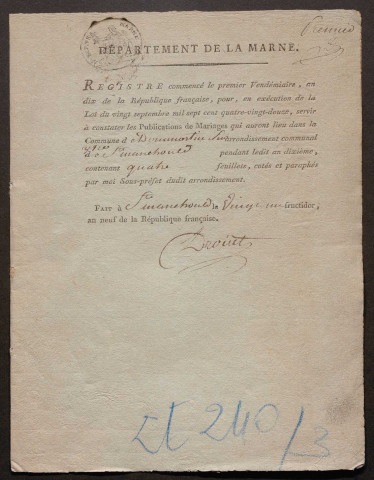 Premier
DÉPARTEMENT DE LA MARNE.
REGISTRE commencé le premier Vendémiaire, an
dix de la République française, pour, en exécution de la
Loi du vingt septembre mil sept cent quatre-vingt-douze, servir
à constater les Publications de Mariages qui auront lieu dans la
Commune d arrondissement communal
de Ste Manehould pendant ledit an dixième,
contenant quatre feuillets, cotés et paraphés
par moi Sous-préfet dudit arrondissement.
FAIT à Ste manehould le Vingt fructidor,
an neuf de la République française.
Drouet
2E 240/3